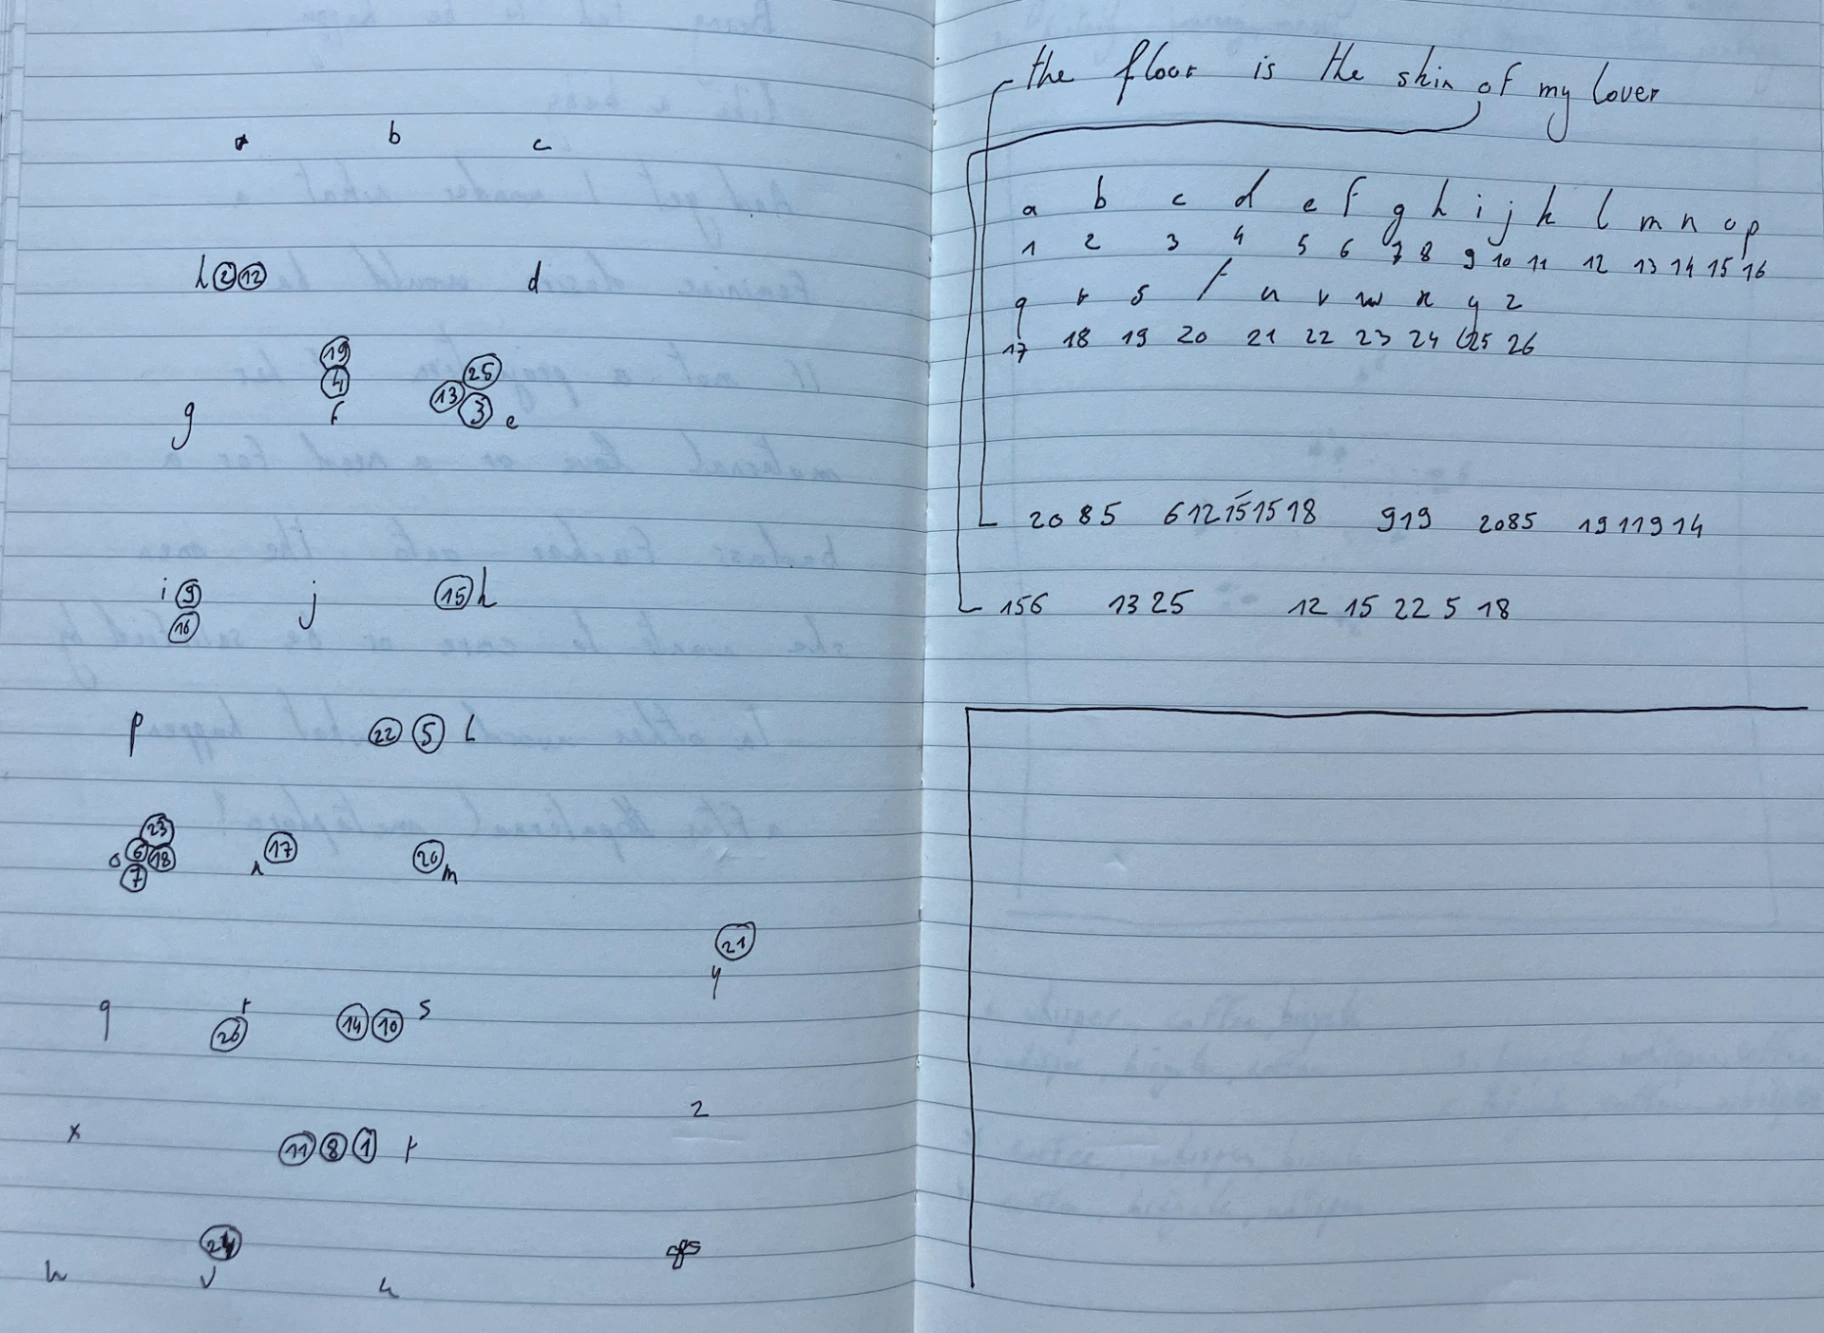 a b c
h 2 12 d
19
4 25
13 3
g f e
i 9 j 15 k
16
p 22 5 l
23
o 6 18 n 17 20 m
7
21
y
q r 14 10 s
26
z
x 11 8 1 t
24
w v u
the floor is the skin of my lover
a b c d e f g h i j k l m n o p
1 2 3 4 5 6 7 8 9 10 11 12 13 14 15 16
q r s t u v w x y z
17 18 19 20 21 22 23 24 25 26
20 8 5 6 12 15 15 18 9 19 20 8 5 19 11 9 14
15 6 13 25 12 15 22 5 18